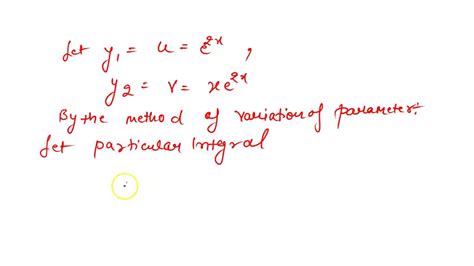 Let y₁ = u = e²ˣ ,
y₂ = v = xe²ˣ
By the method of variation of parameter.
Let particular Integral